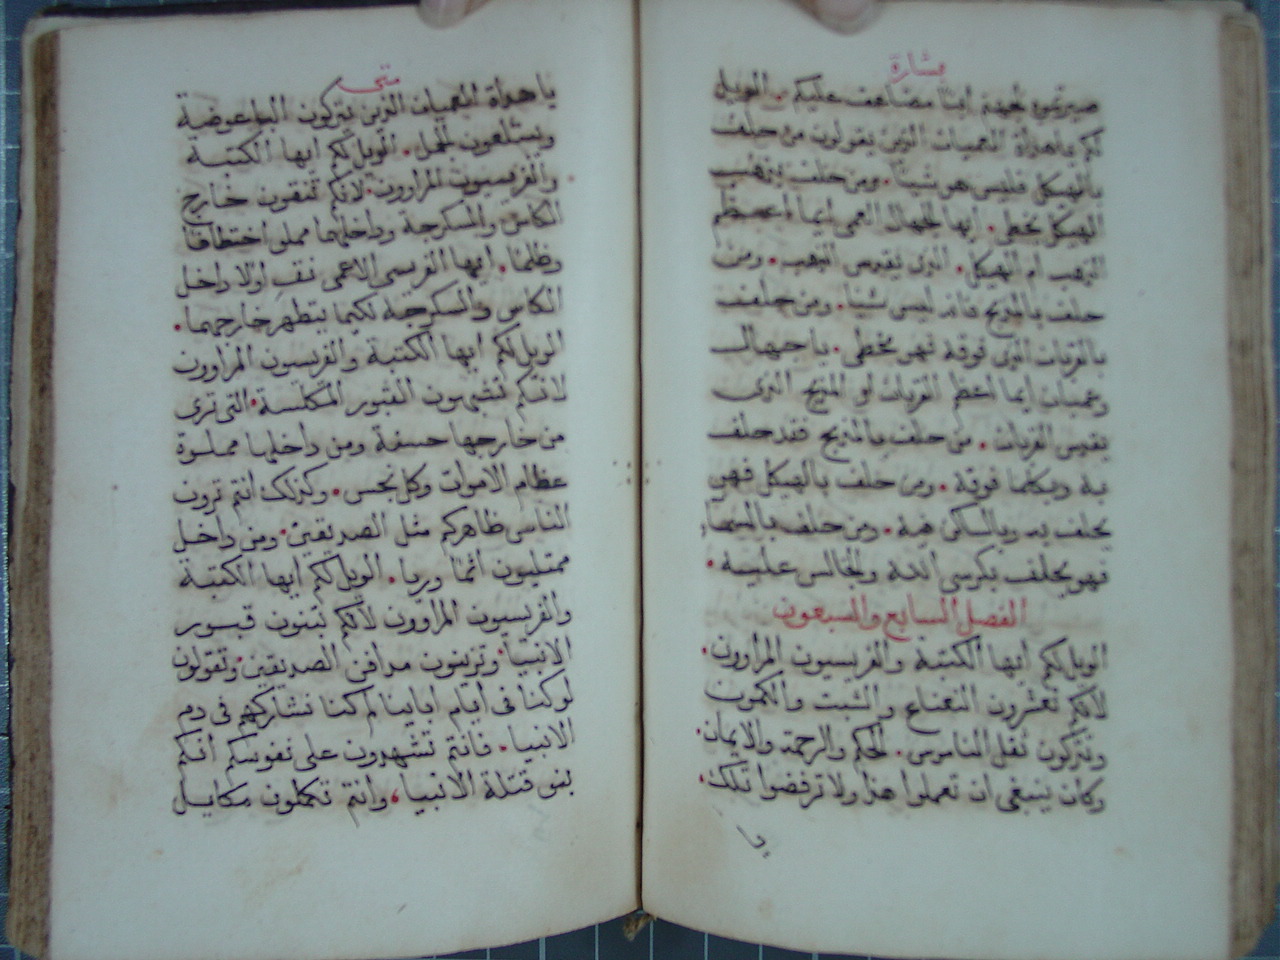 بشارة
صيرتموه لجهنم ابنًا مضاعف عليكم . الويل
لكم يا هداة العميان الذين يقولون من حلف
بالهيكل فليس هو شيئًا . ومن حلف بذهب
الهيكل يخطي . ايها الجهال العمي ايما اعظم
الذهب ام الهيكل . الذى يقدس الذهب . ومن
حلف بالمذبح فانه ليس شيئا . ومن حلف
بالقربان الذى فوقه فهو يخطي . يا جهال
وعميان ايما اعظم القربان او المذبح الذى
يقدس القربان . من حلف بالمذبح فقد حلف
به وبكلما فوقه . ومن حلف بالهيكل فهو
يحلف به وبالساكن فيه . ومن حلف بالسما
فهو يحلف بكرسي الله والجالس عليه .
الفصل السابع والسبعون
الويل لكم ايها الكتبة والفريسيون المراوون .
لانكم تعشرون النعناع والشبت والكمون
وتتركون ثقل الناموس . الحكم والرحمة والايمان .
وكان ينبغي ان تعملوا هذا ولا ترفضوا تلك .
يا
متى
يا هداة العميان الذين يتركون الباعوضة
ويبتلعون الجمل . الويل لكم ايها الكتبة
والفريسيون المراوون . لانكم تنقون خارج
الكاس والسكرجة وداخلهما مملو اختطافا
وظلما . ايها الفريسي الاعمى نقِ اولا داخل
الكاس والسكرجة لكيما يتطهر خارجهما .
الويل لكم ايها الكتبة والفريسيون المراوون
لانكم تشبهون القبور المكلسة . التى ترى
من خارجها حسنة ومن داخلها مملوة
عظام الاموات وكل نجس . وكذلك انتم ترون
الناس ظاهركم مثل الصديقين . ومن داخل
ممتليون اثما وريا . الويل لكم ايها الكتبة
والفريسيون المراوون لانكم تبنون قبور
الانبيا . وتزينون مدافن الصديقين . وتقولون
لو كنا فى ايام اباينا لم كنا نشاركهم فى دم
الانبيا . فانتم تشهدون على نفوسكم انكم
بنو قتلة الانبيا ، وانتم تكملون مكاييل